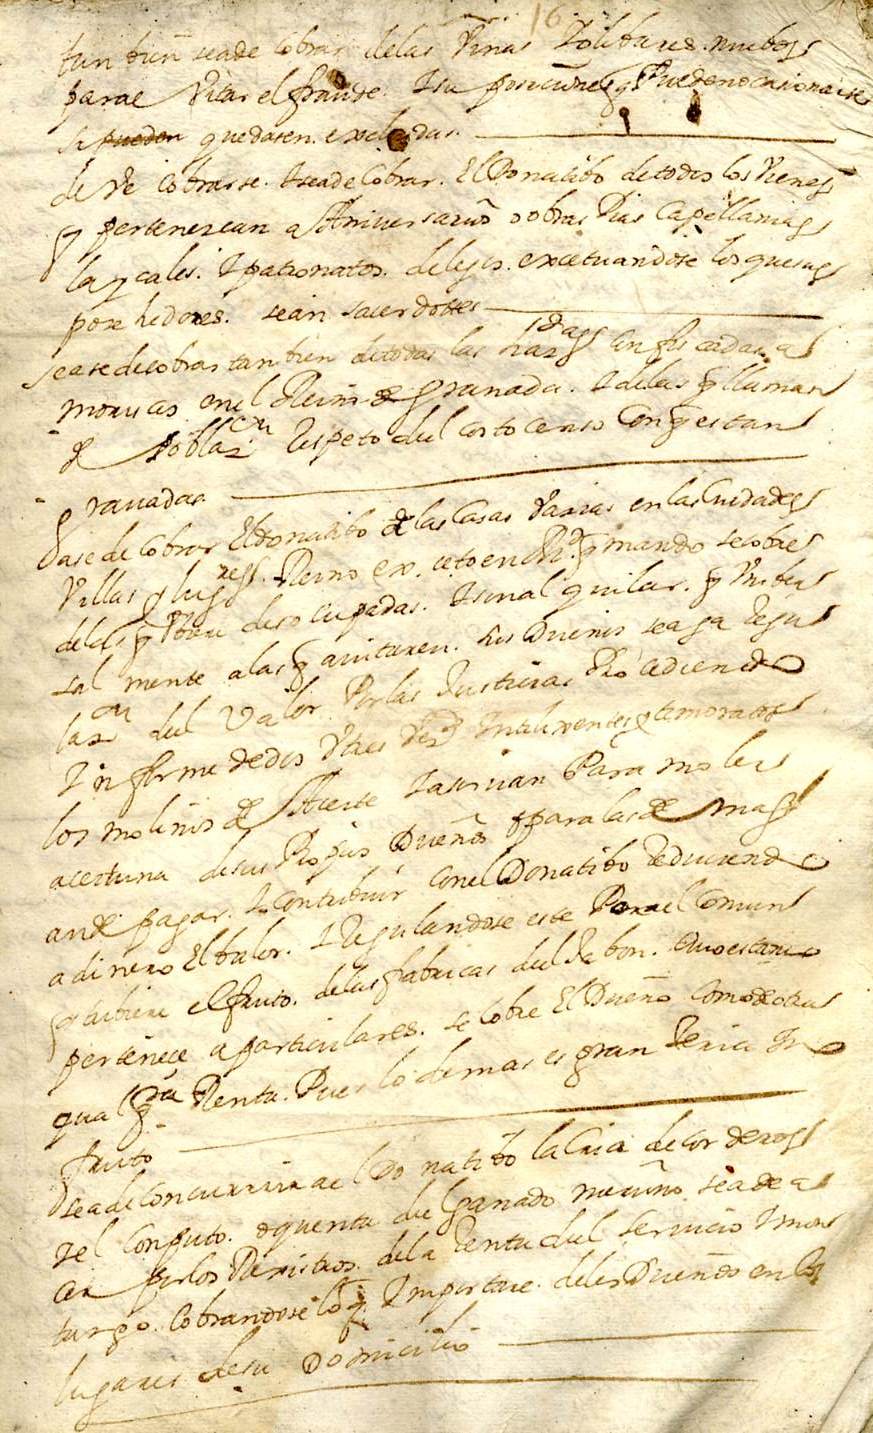 16
tan bien se a de cobrar de las Viñas I olibares nuebos
para e Vitar el fraude I su posiciones q Pueden ocasionarse
si pueden quedasen excluidas
de Ve Cobrarse I se a de Cobrar El Donatibo de todos los Vienes
q pertenezcan a Aniversarios o obras Pias Capellanias
laycales I patronatos de legos excetuandose los que sus
posehedores sean sacerdotes
sea se de cobrar tan bien de todas las hazdas confiscadas a
moriscos en el Reino de Granada I de las q llaman
de Poblazon Respeto del corto censo Con q estan
gravadas
Ase de Cobrar El donatibo de las Casas Varias en las Ciudades
Villas y lugres Reino ex ceto en Md q mando se cobre
de las q Vbiere desocupadas I sin alquilar q Vniber
salmente a las q avitaren sus Dueños se aga Regu
lazon del Valor Por las Justicias Prosediendo
Informe de dos V tres Vezos Intelixentes y temorados
los molinos de Aceite I a sirvan Para moler
aceituna de sus Propios Dueños o para las de mas
an de pagar I Contribuir Con el Donatibo Reduciendo
a dinero El balor I Regulandose este Por el Comun
q tubiere el fruto de las fabricas del Jabon Cuio estanco
pertenece a particulares se cobre El Dueño Como de otra
qualqra Renta Pues lo demas es gran Jeria In
fruto
se a de concurrir a el Donatibo la Cria de Corderos
I el Computo o quenta del ganado merino se a de a
cer por los Rexistros de la Renta del servicio I mon
tazgo Cobrandose lo q Importare de los Dueños en los
lugares de su Domicilio